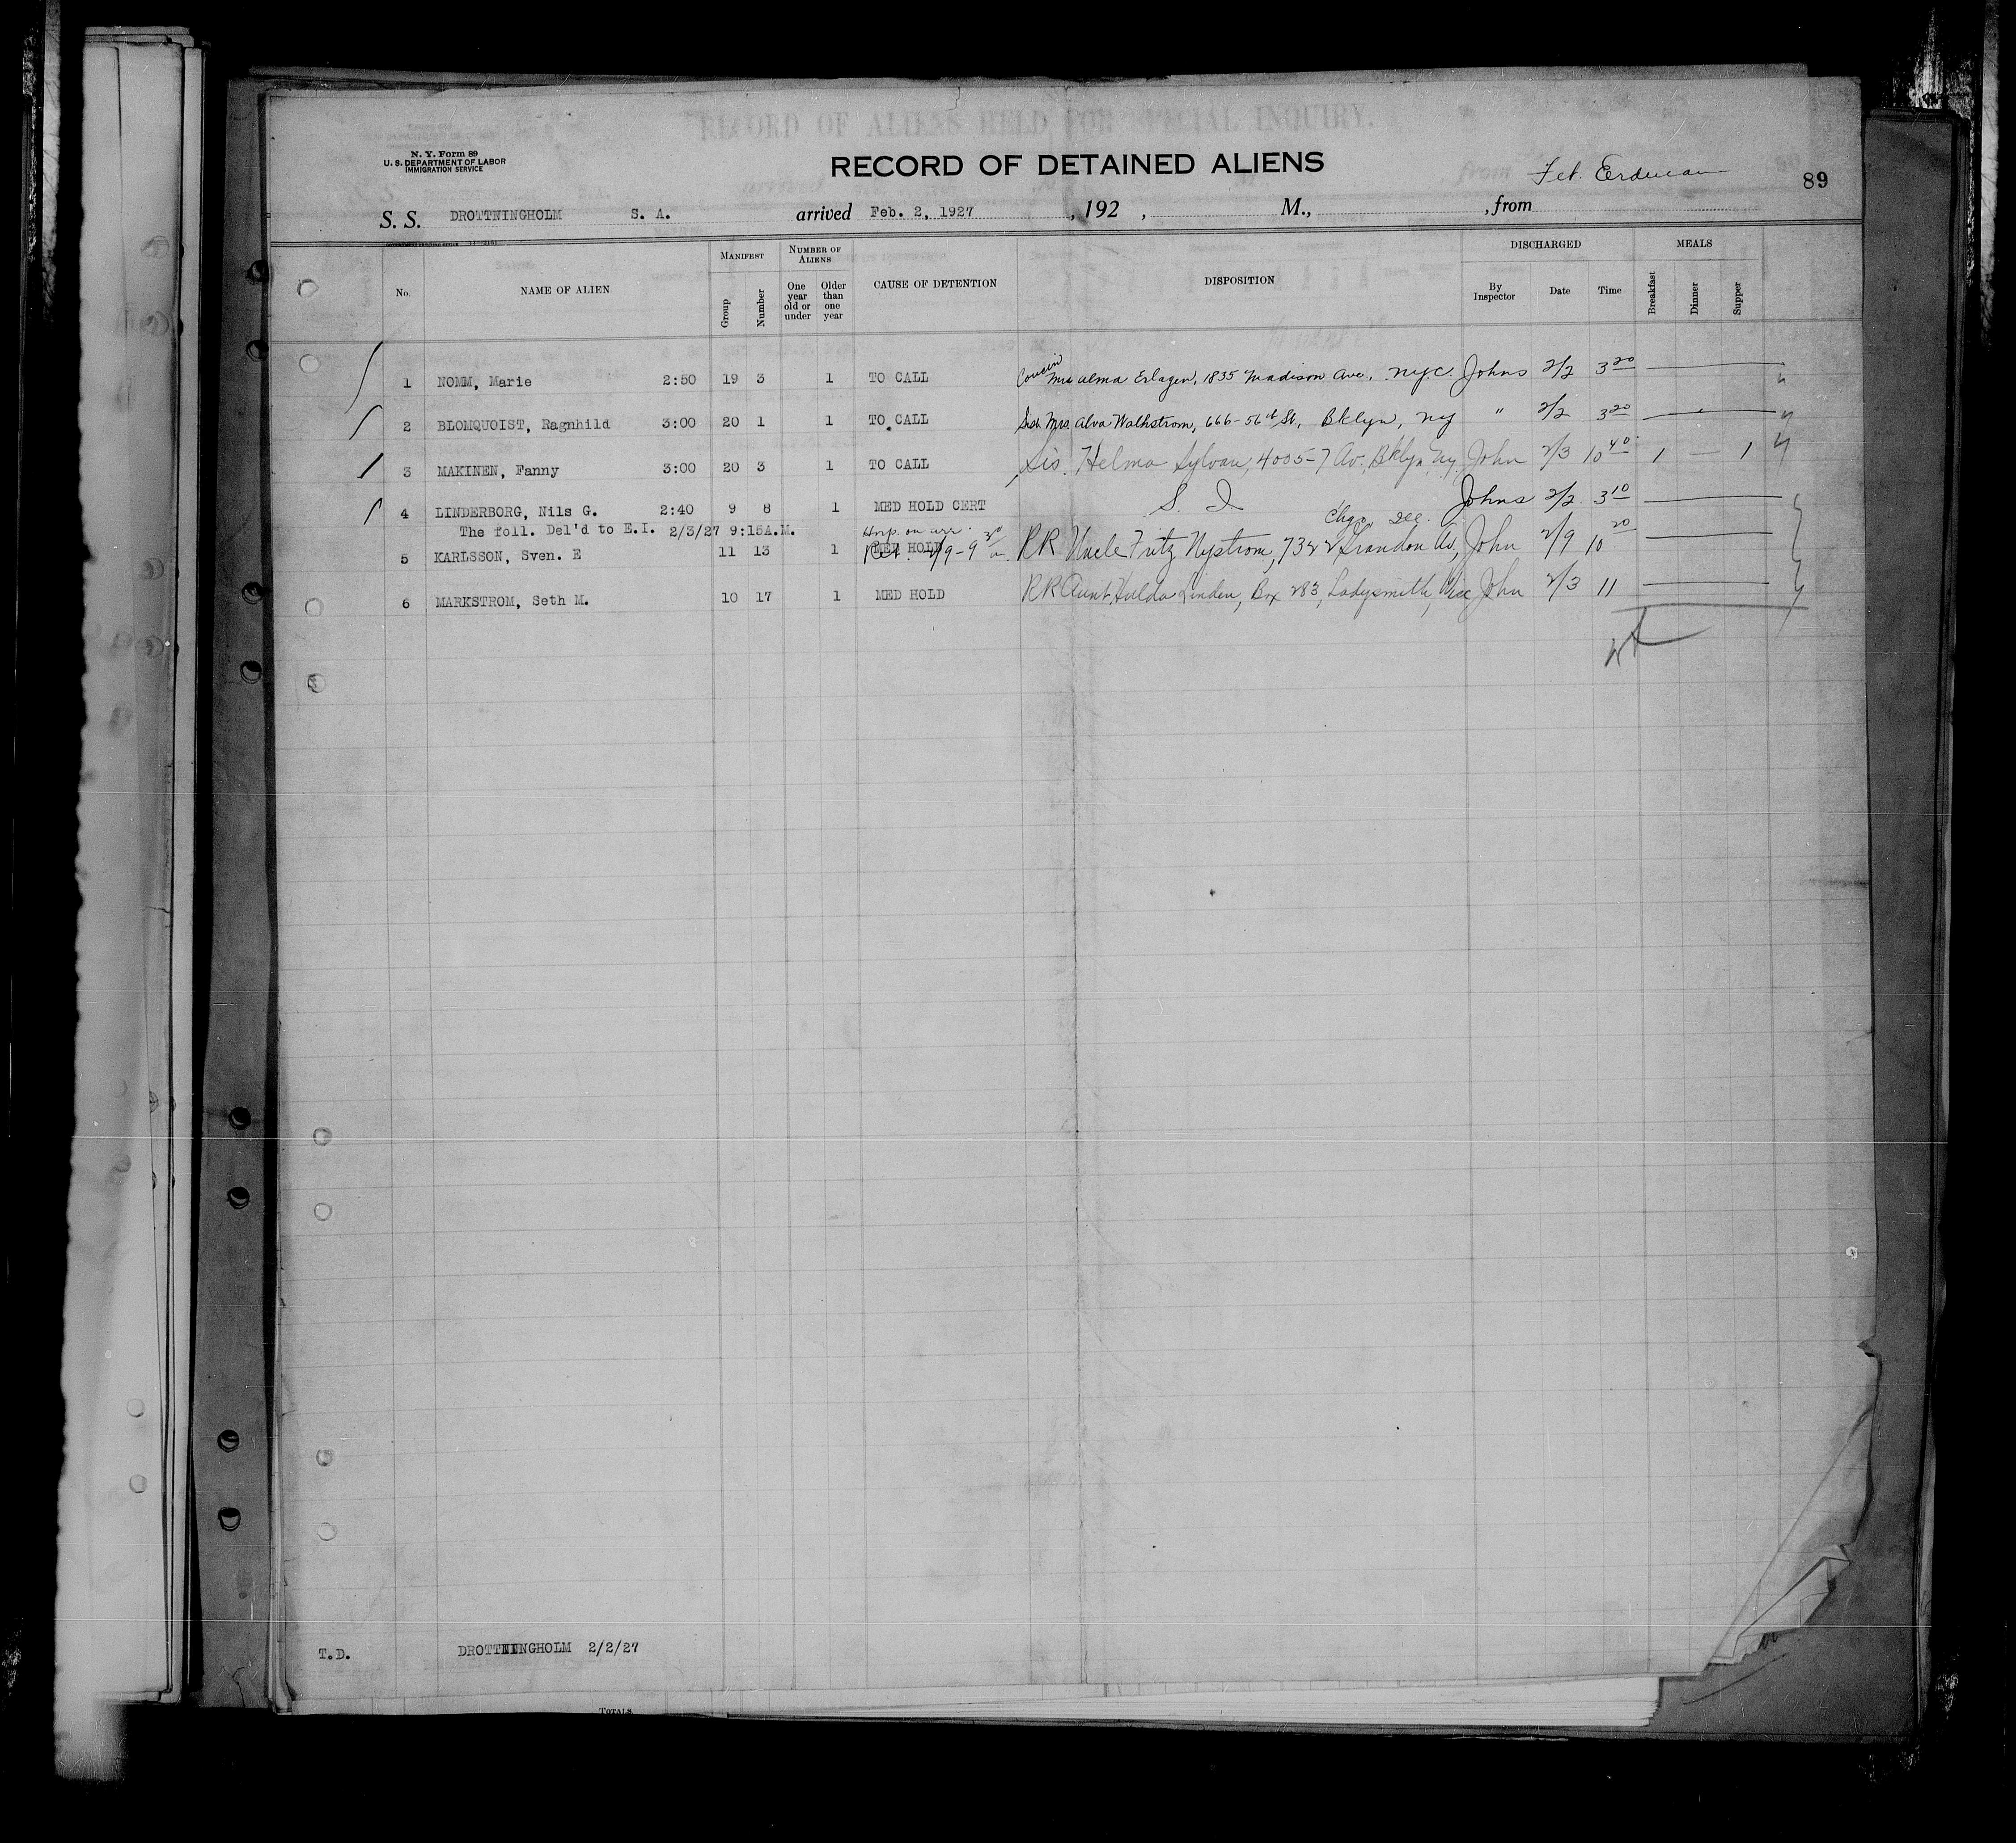 RECORD OF ALIENS HELD FOR SPECIAL INQUIRY.
N. Y. Form 89
U. S. DEPARTMENT OF LABOR
IMMIGRATION SERVICE
RECORD OF DETAINED ALIENS
Erdman
89
S. S. DROTTNINGHOLM S. A. arrived Feb. 2, 1927 , 192 , M., , from
No. NAME OF ALIEN MANIFEST Group Number NUMBER OF ALIENS One year old or under Older than one year CAUSE OF DETENTION DISPOSITION DISCHARGED By Inspector Date Time MEALS Breakfast Dinner Supper
1 NOMM, Marie 2:50 19 3 1 TO CALL Cousin Mrs Alma Erlagen, 1835 Madison Ave, NYC. Johns 2/2 3 20
2 BLOMQUOIST, Ragnhild 3:00 20 1 1 TO CALL Mrs. Alva Walhstrom, 666-56th St, Bklyn, NY " 2/2 3 20
3 MAKINEN, Fanny 3:00 20 3 1 TO CALL Sis. Helma Sylvan, 4005-7 Av. Bklyn Ny. John 2/3 10 40 1 — 1
4 LINDERBORG, Nils G. 2:40 9 8 1 MED HOLD CERT S. I Johns 2/2 3 10
The foll. Del'd to E.I. 2/3/27 9:15A.M. Hosp on arr.
5 KARLSSON, Sven. E 11 13 1 MED HOLD 2/9-9 RR Uncle Fritz Nystrom, Av, Chgo, Ill. John 2/9 10 20
6 MARKSTROM, Seth M. 10 17 1 MED HOLD RR Aunt Hulda Linden, Box 283, Ladysmith, Wis John 2/3 11
T.D. DROTTNINGHOLM 2/2/27
TOTALS